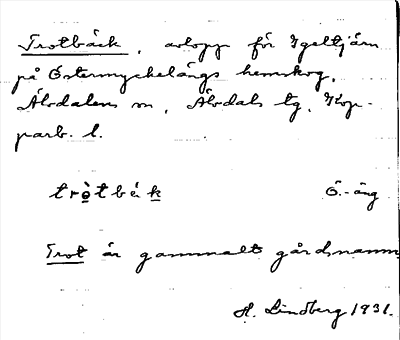 Trotbäck, avlopp för Igeltjärn
på Östermyckelängs hemskog,
Älvdalens sn, Älvdals tg, Kop-
parb. l.
tròtbäk Ö.-äng
Trot är gammalt gårdsnamn
H. Lindberg 1931.